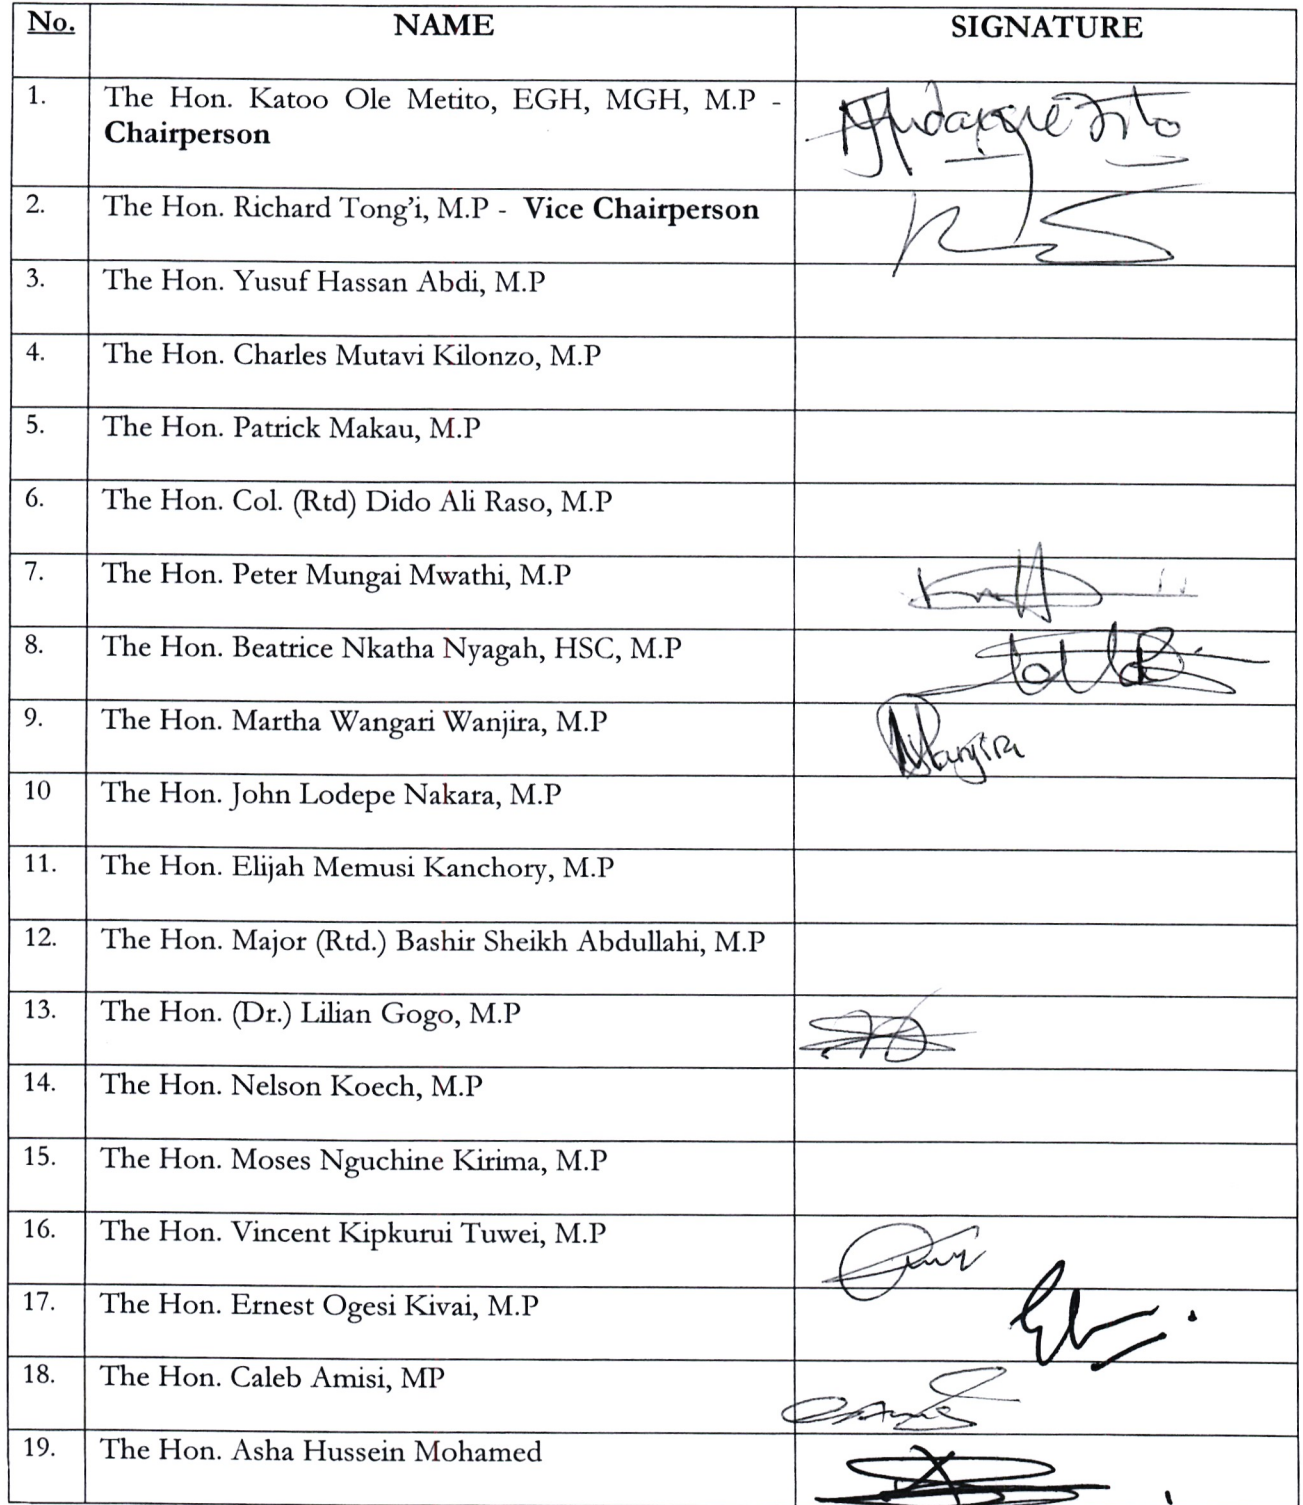 No. NAME SIGNATURE
1. The Hon. Katoo Ole Metito, EGH, MGH, M.P -
Chairperson
2. The Hon. Richard Tong'i, M.P - Vice Chairperson
3. The Hon. Yusuf Hassan Abdi, M.P
4. The Hon. Charles Mutavi Kilonzo, M.P
5. The Hon. Patrick Makau, M.P
6. The Hon. Col. (Rtd) Dido Ali Raso, M.P
7. The Hon. Peter Mungai Mwathi, M.P
8. The Hon. Beatrice Nkatha Nyagah, HSC, M.P
9. The Hon. Martha Wangari Wanjira, M.P
10 The Hon. John Lodepe Nakara, M.P
11. The Hon. Elijah Memusi Kanchory, M.P
12. The Hon. Major (Rtd.) Bashir Sheikh Abdullahi, M.P
13. The Hon. (Dr.) Lilian Gogo, M.P
14. The Hon. Nelson Koech, M.P
15. The Hon. Moses Nguchine Kirima, M.P
16. The Hon. Vincent Kipkurui Tuwei, M.P
17. The Hon. Ernest Ogesi Kivai, M.P
18. The Hon. Caleb Amisi, MP
19. The Hon. Asha Hussein Mohamed